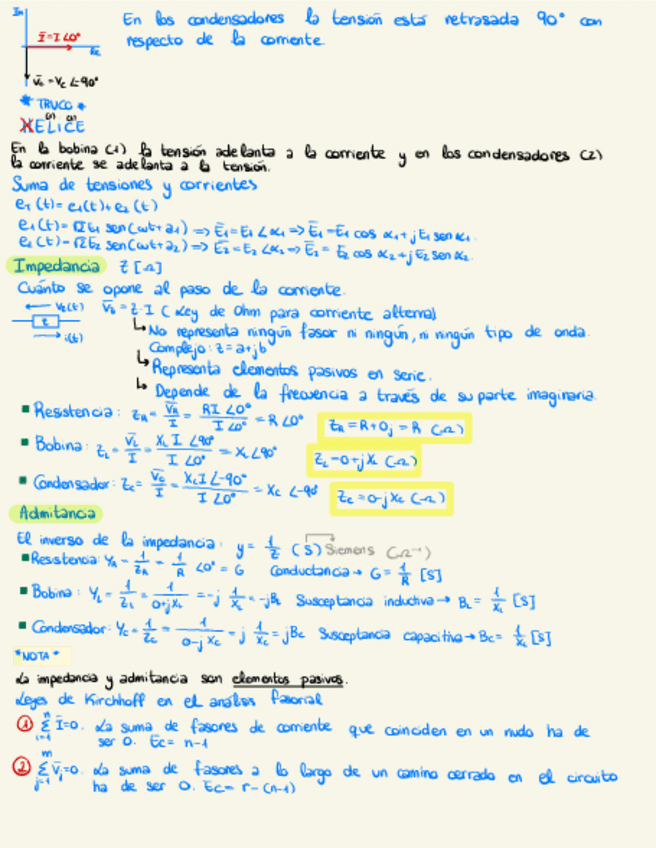 Im
Ī=I∠0°
Re
V̄c=Vc∠-90°
En los condensadores la tensión está retrasada 90° con
respecto de la corriente.
* TRUCO *
HELICE
(1) (2)
En la bobina (1) la tensión adelanta a la corriente y en los condensadores (2)
la corriente se adelanta a la tensión.
Suma de tensiones y corrientes
e_T(t)=e₁(t)+e₂(t)
e₁(t)=√2E₁ sen(ωt+α₁) => Ē₁=E₁∠α₁ => Ē₁=E₁ cos α₁+jE₁ sen α₁.
e₂(t)=√2E₂ sen(ωt+α₂) => Ē₂=E₂∠α₂ => Ē₂=E₂ cos α₂+jE₂ sen α₂.
Impedancia z [Ω]
Cuánto se opone al paso de la corriente.
Vz(t)
z
i(t)
V̄z=z·I (Ley de Ohm para corriente alterna)
↳ No representa ningún fasor ni ningún, ni ningún tipo de onda.
Complejo: z=a+jb
↳ Representa elementos pasivos en serie.
↳ Depende de la frecuencia a través de su parte imaginaria.
▪ Resistencia: z_R = V̄_R/Ī = RI∠0°/I∠0° = R∠0° z_R=R+0j=R (Ω)
▪ Bobina: z_L = V̄_L/Ī = X_L I∠90°/I∠0° = X_L∠90° z_L=0+jX_L (Ω)
▪ Condensador: z_c = V̄c/Ī = XcI∠-90°/I∠0° = Xc∠-90° z_c=0-jXc (Ω)
Admitancia
El inverso de la impedancia: y = 1/z (S) Siemens (Ω⁻¹)
▪ Resistencia: Y_R = 1/z_R = 1/R ∠0° = G Conductancia → G = 1/R [S]
▪ Bobina: Y_L = 1/z_L = 1/(0+jX_L) = -j 1/X_L = -jB_L Susceptancia inductiva → B_L = 1/X_L [S]
▪ Condensador: Y_c = 1/z_c = 1/(0-jXc) = j 1/Xc = jBc Susceptancia capacitiva → Bc = 1/Xc [S]
*NOTA*
La impedancia y admitancia son elementos pasivos.
Leyes de Kirchhoff en el análisis fasorial
① Σ(i=1→n) Ī=0. La suma de fasores de corriente que coinciden en un nudo ha de
ser 0. Ec= n-1
② Σ(j=1→m) V̄j=0. La suma de fasores a lo largo de un camino cerrado en el circuito
ha de ser 0. Ec= r-(n-1)